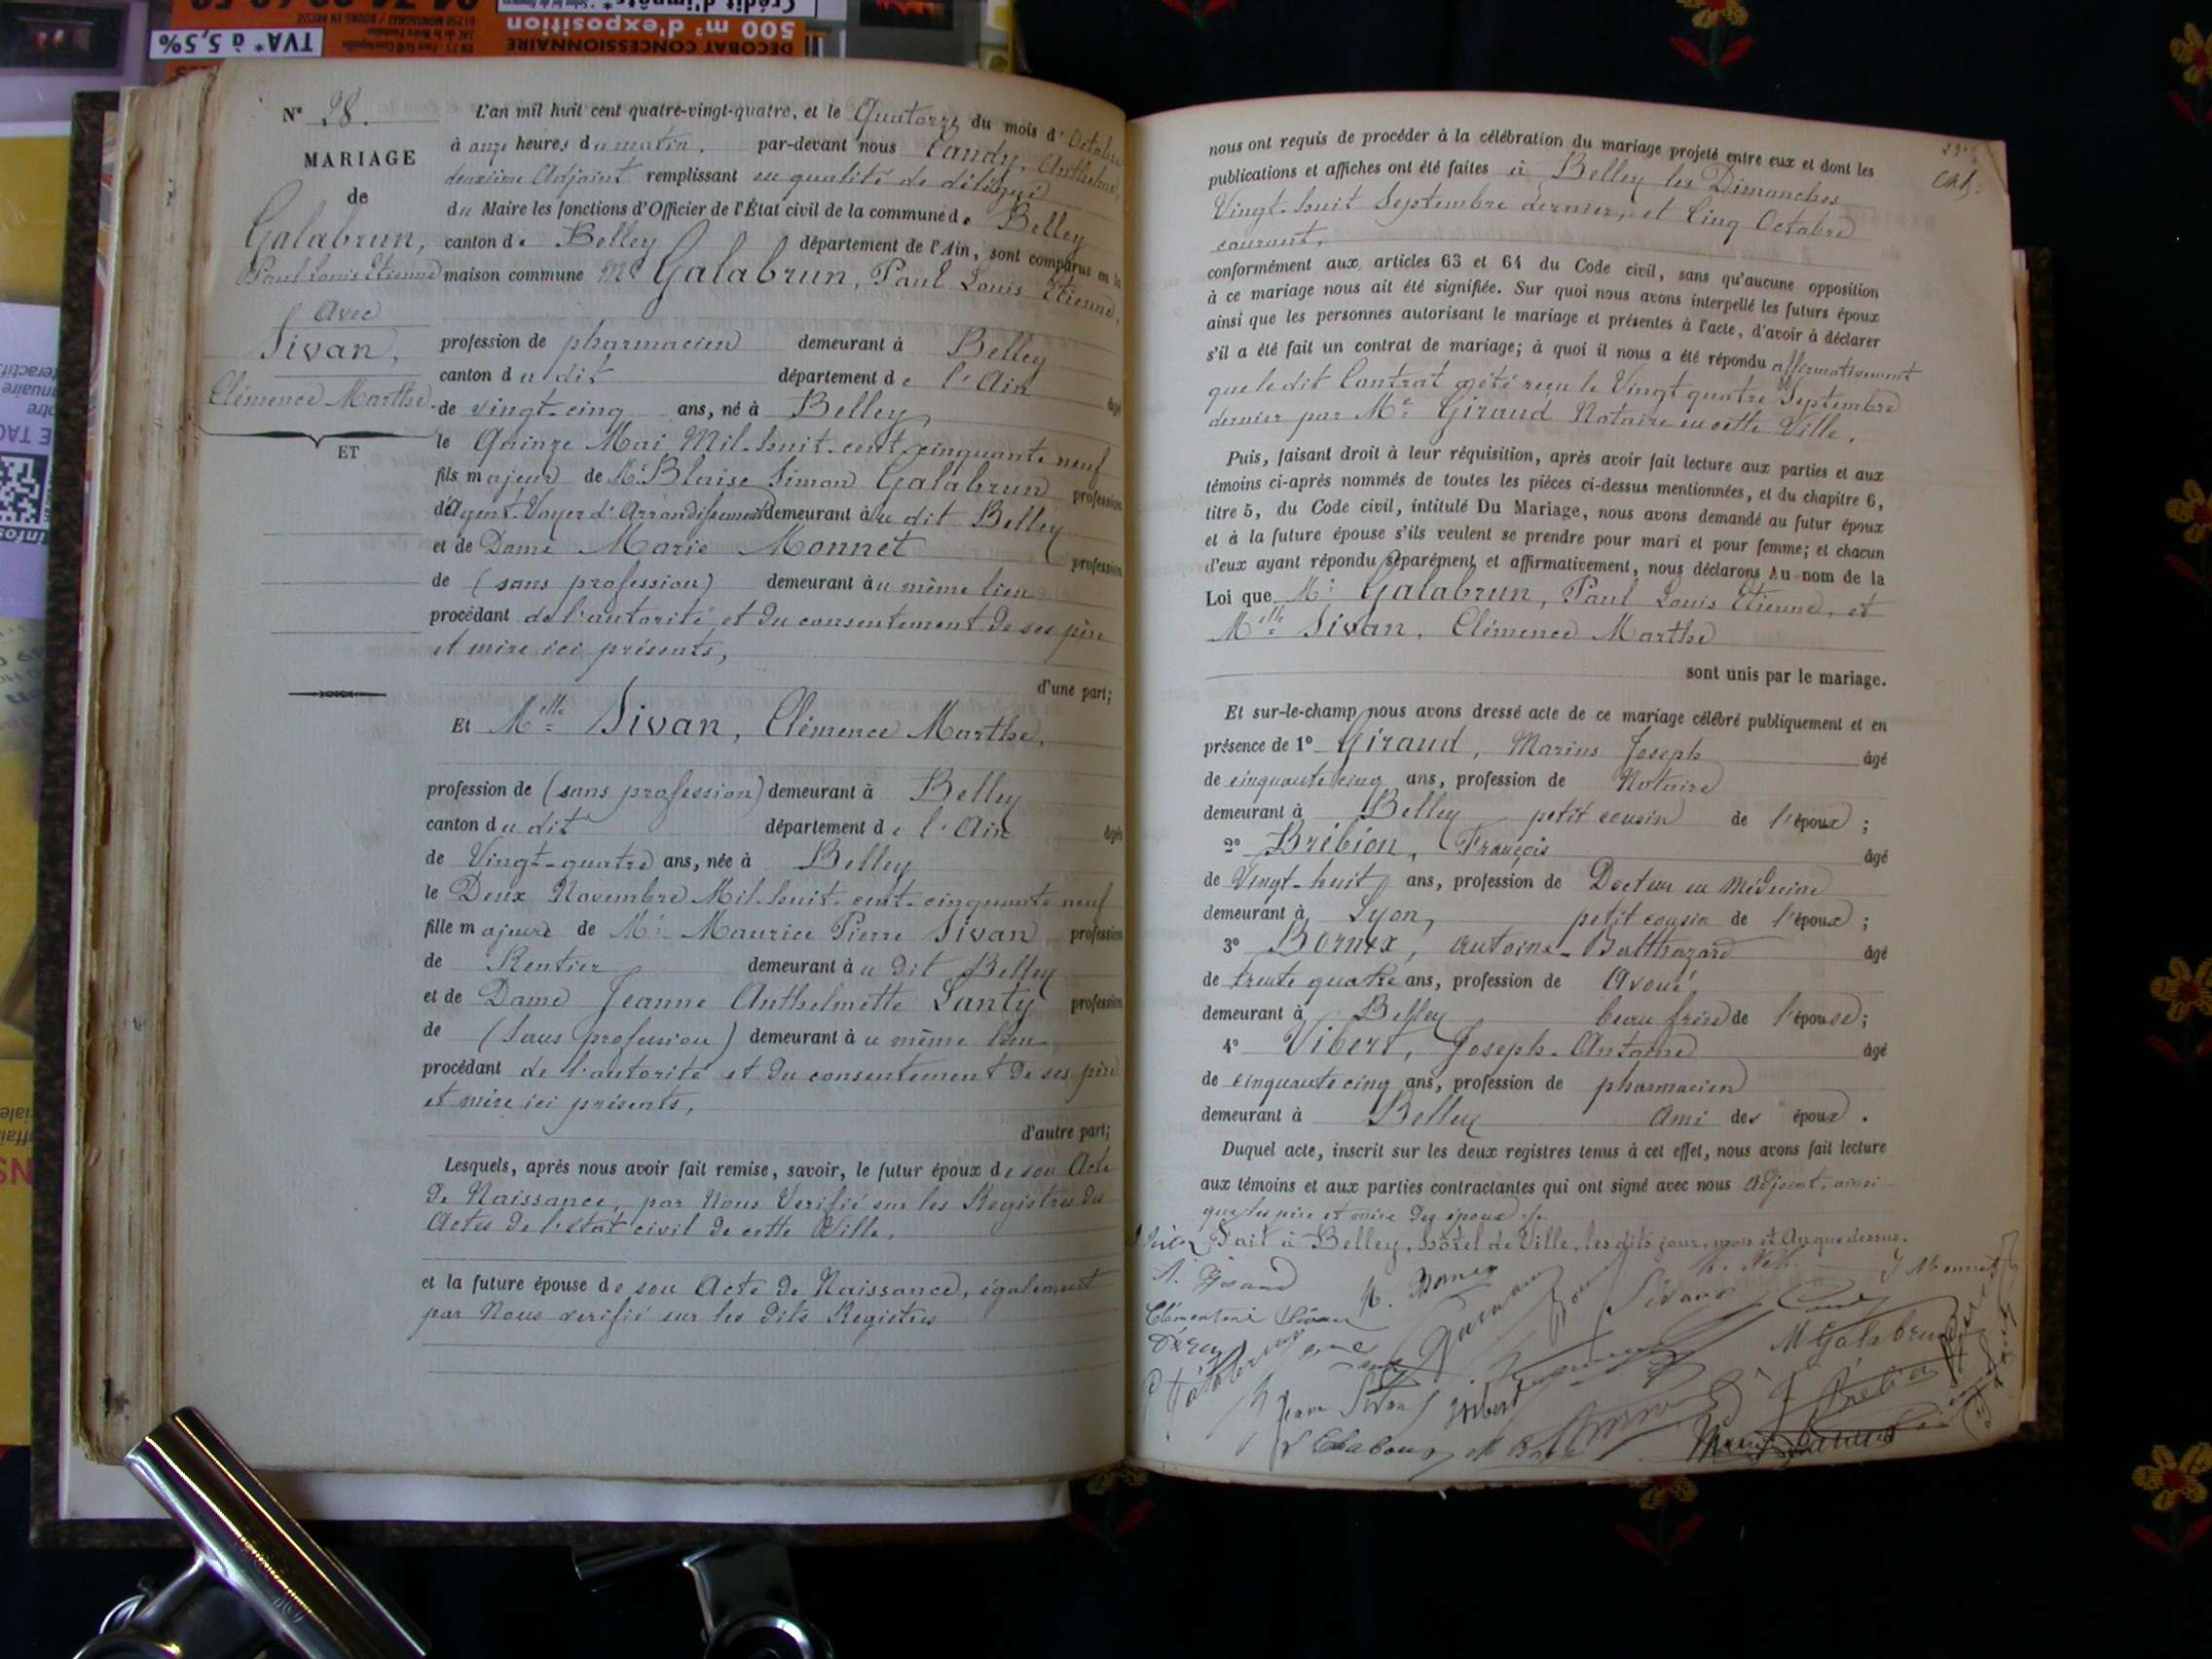 DECOBAT CONCESSIONNAIRE
500 m² d'exposition
TVA* à 5,5%
N° 28.
MARIAGE
de
Galabrun,
Paul Louis Etienne
Avec
Sivan,
Clémence Marthe.
ET
L'an mil huit cent quatre-vingt-quatre, et le Quatorze du mois d'Octobre
à onze heures du matin, par-devant nous Candy, Anthelme,
deuxième Adjoint remplissant en qualité de délégué
du Maire les fonctions d'Officier de l'État civil de la commune de Belley
canton de Belley département de l'Ain, sont comparus en la
maison commune Mr Galabrun, Paul Louis Etienne,
profession de pharmacien demeurant à Belley
canton du dit département de l'Ain âgé
de vingt-cinq ans, né à Belley
le Quinze Mai Mil-huit-cent-cinquante neuf
fils majeur de Mr Blaise Simon Galabrun profession
d'Agent-Voyer d'Arrondissement demeurant à u dit Belley
et de Dame Marie Monnet profession
de (sans profession) demeurant à u même lieu
procédant de l'autorité et du consentement de ses père
et mère ici présents,
d'une part;
Et Melle Sivan, Clémence Marthe,
profession de (sans profession) demeurant à Belley
canton du dit département de l'Ain âgée
de Vingt-quatre ans, née à Belley
le Deux Novembre Mil-huit-cent-cinquante neuf
fille majeure de Mr Maurice Pierre Sivan profession
de Rentier demeurant à u dit Belley
et de Dame Jeanne Anthelmette Lanty profession
de (sans profession) demeurant à u même lieu
procédant de l'autorité et du consentement de ses père
et mère ici présents,
d'autre part;
Lesquels, après nous avoir fait remise, savoir, le futur époux de son Acte
de Naissance, par Nous Verifié sur les Registres des
Actes de l'état civil de cette Ville,
et la future épouse de son Acte de Naissance, également
par Nous verifié sur les dits Registres
nous ont requis de procéder à la célébration du mariage projeté entre eux et dont les
publications et affiches ont été faites à Belley les Dimanches
Vingt-huit Septembre dernier, et Cinq Octobre
courant,
conformément aux articles 63 et 64 du Code civil, sans qu'aucune opposition
à ce mariage nous ait été signifiée. Sur quoi nous avons interpellé les futurs époux
ainsi que les personnes autorisant le mariage et présentes à l'acte, d'avoir à déclarer
s'il a été fait un contrat de mariage; à quoi il nous a été répondu affirmativement
que le dit Contrat a été reçu le Vingt quatre Septembre
dernier par Me Giraud Notaire en cette Ville.
Puis, faisant droit à leur réquisition, après avoir fait lecture aux parties et aux
témoins ci-après nommés de toutes les pièces ci-dessus mentionnées, et du chapitre 6,
titre 5, du Code civil, intitulé Du Mariage, nous avons demandé au futur époux
et à la future épouse s'ils veulent se prendre pour mari et pour femme; et chacun
d'eux ayant répondu séparément et affirmativement, nous déclarons Au nom de la
Loi que Mr Galabrun, Paul Louis Etienne, et
Melle Sivan, Clémence Marthe
sont unis par le mariage.
Et sur-le-champ nous avons dressé acte de ce mariage célébré publiquement et en
présence de 1° Giraud, Marius Joseph âgé
de cinquante cinq ans, profession de Notaire
demeurant à Belley petit cousin de l'époux;
2° Brébion, François âgé
de Vingt-huit ans, profession de Docteur en Médecine
demeurant à Lyon, petit cousin de l'époux;
3° Bornex, Antoine-Balthazard âgé
de trente quatre ans, profession de Avoué
demeurant à Belley beau frère de l'épouse;
4° Vibert, Joseph-Antoine âgé
de cinquante cinq ans, profession de pharmacien
demeurant à Belley Ami des époux.
Duquel acte, inscrit sur les deux registres tenus à cet effet, nous avons fait lecture
aux témoins et aux parties contractantes qui ont signé avec nous Adjoint, ainsi
que les père et mère des époux
Fait à Belley, hôtel de Ville, les dits jour, mois et An que dessus.
Sivan
J Monnet
Clémentine Sivan
M Galabrun
Jean Sivan
Vibert